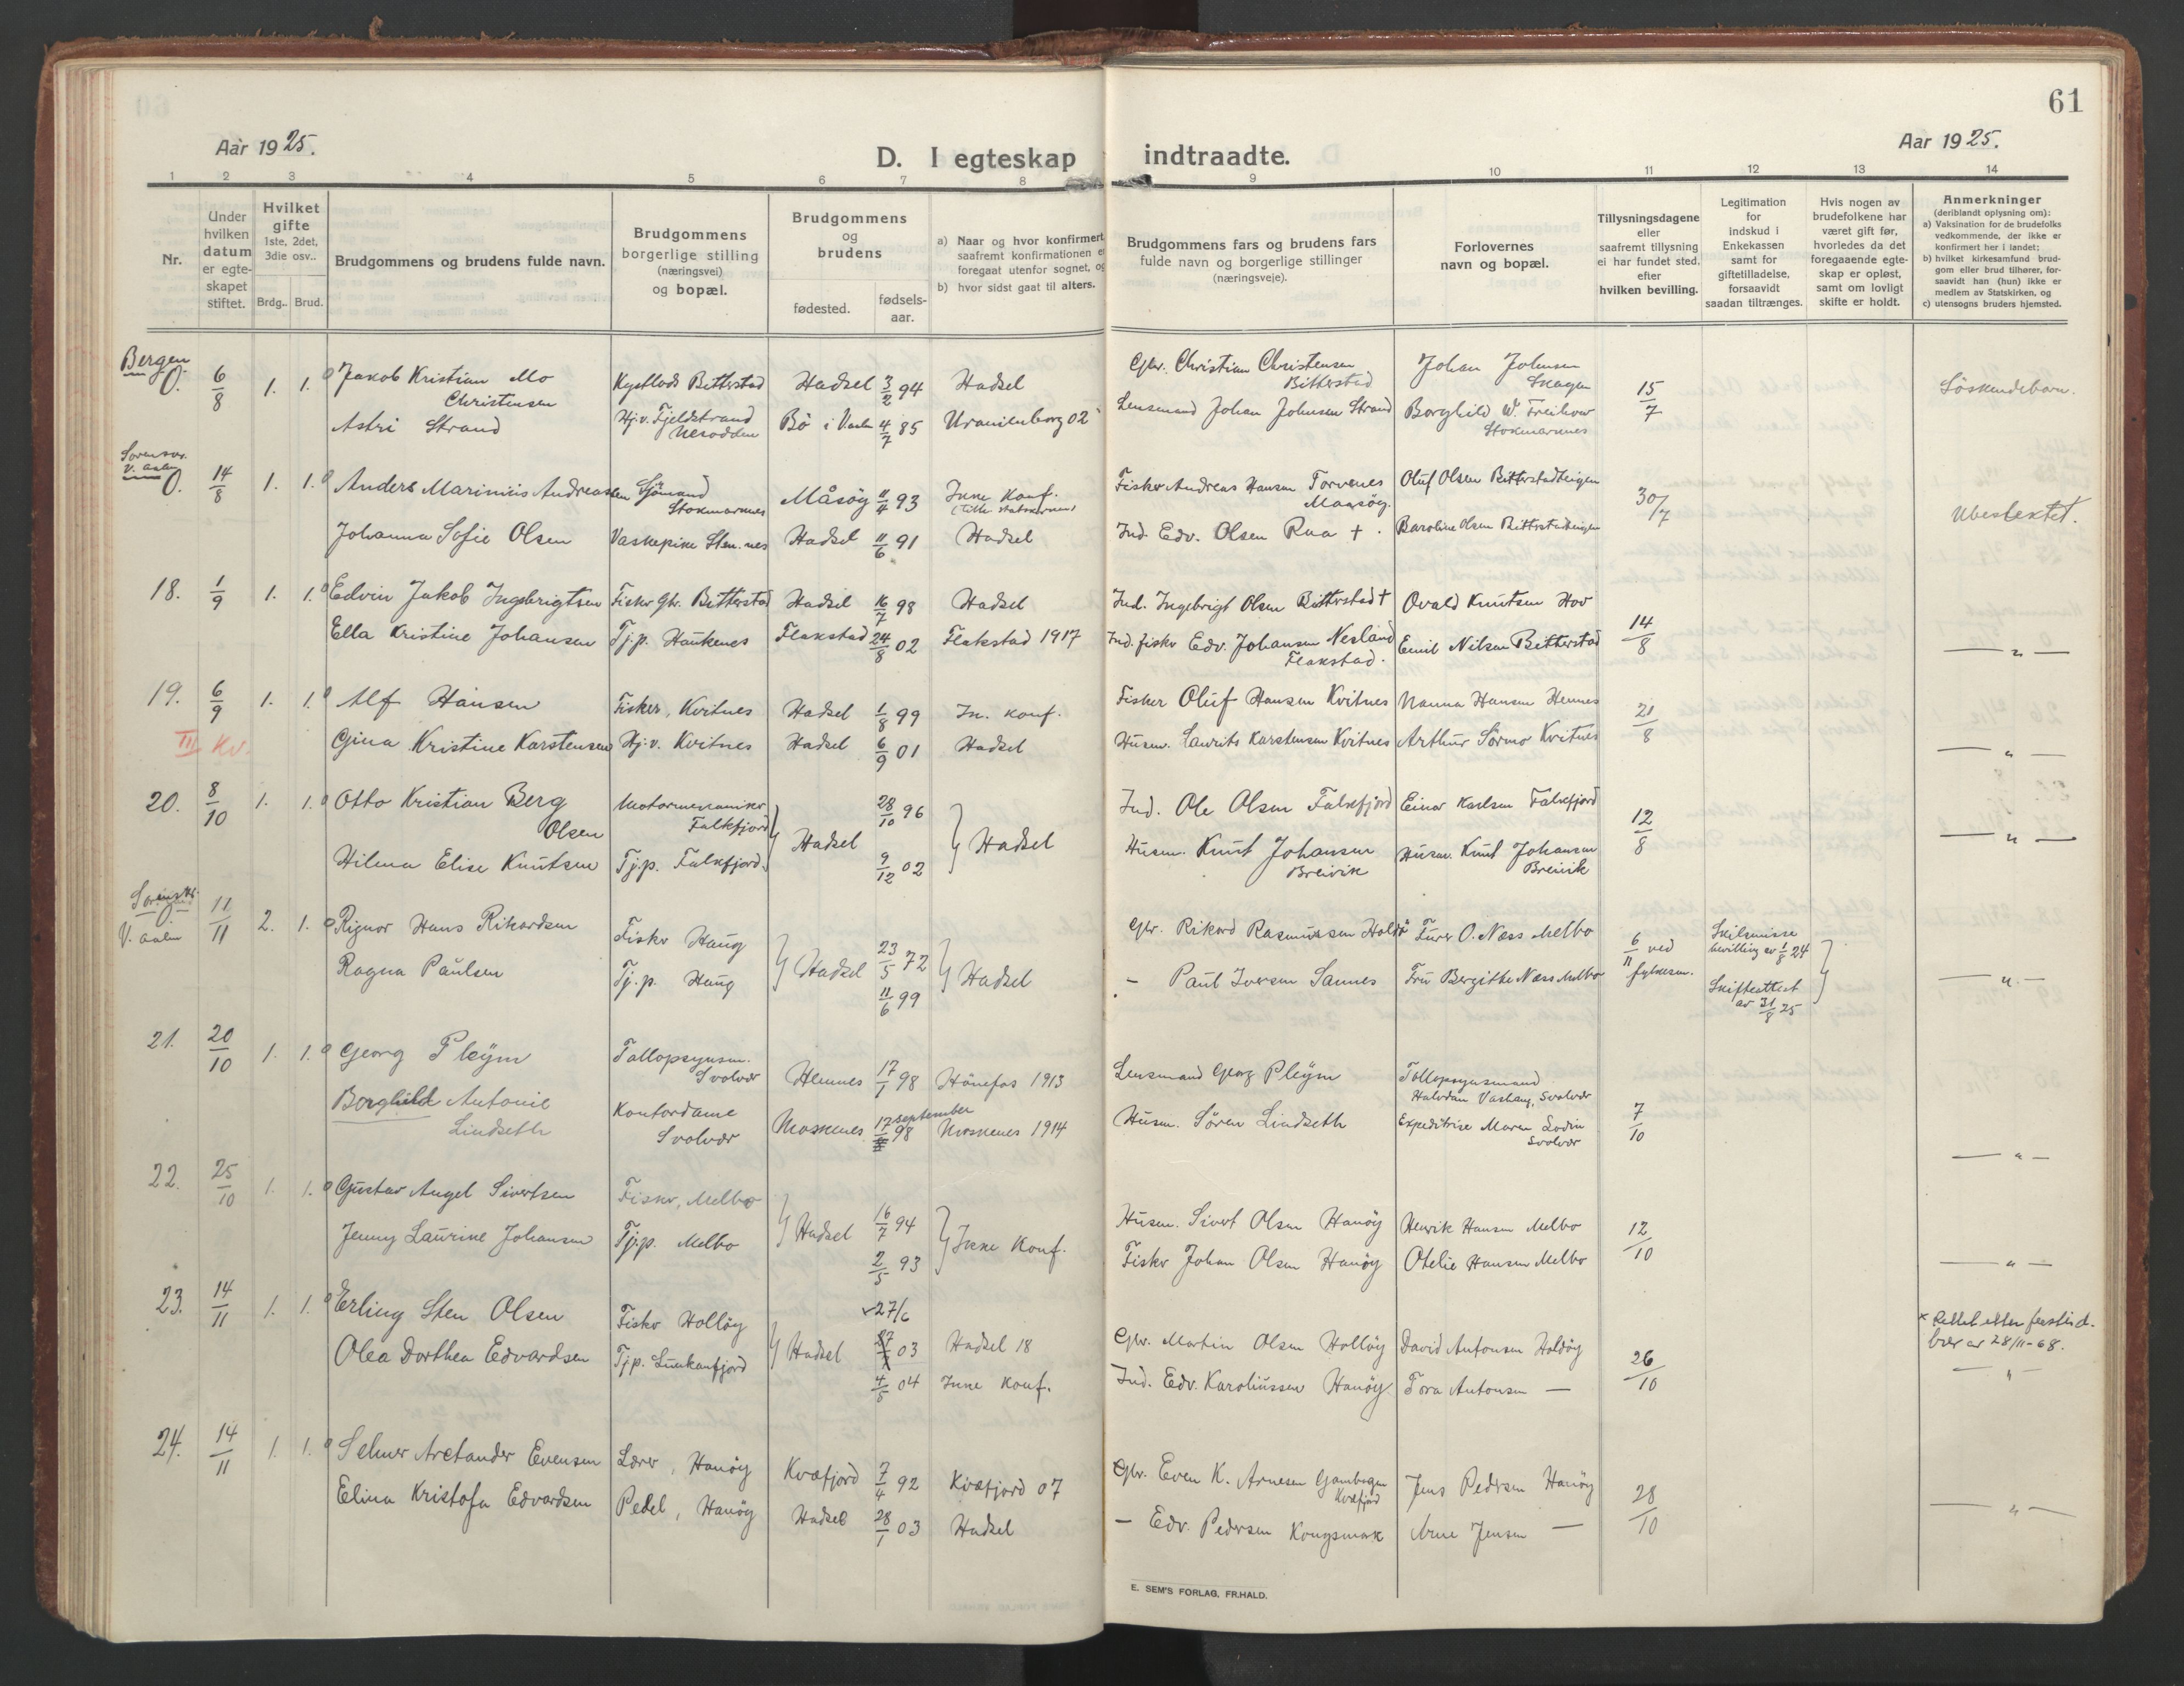 61
Aar 1925.
D. I egteskap indtraadte.
Aar 1925.
1 2 3 4 5 6 7 8 9 10 11 12 13 14
Nr.
Under hvilken datum er egteskapet stiftet.
Hvilket gifte 1ste, 2det, 3die osv..
Brdg.. Brud.
Brudgommens og brudens fulde navn.
Brudgommens borgerlige stilling (næringsvei) og bopæl.
Brudgommens og brudens
fødested. fødselsaar.
a) Naar og hvor konfirmert saafremt konfirmationen foregaat utenfor sognet,
b) hvor sidst gaat til alters.
Brudgommens fars og brudens fars fulde navn og borgerlige stillinger (næringsveje).
Forlovernes navn og bopæl.
Tillysningsdagene eller saafremt tillysning ei har fundet sted. efter hvilken bevilling.
Legitimation for indskud i Enkekassen samt for giftetilladelse, forsaavidt saadan tiltrænges.
Hvis nogen av brudefolkene har været gift før, hvorledes da det foregaaende egteskap er opløst, samt om lovligt skifte er holdt.
Anmerkninger
(deriblandt oplysning om):
a) Vaksination for de brudefolks vedkommende, der ikke er konfirmert her i landet;
b) hvilket kirkesamfund brudgom eller brud tilhører, forsaavidt han (hun) ikke er medlem av Statskirken, og
c) utensogns bruders hjemsted.
Bergen
O. 6/8 1. 1. Jakob Kristian Mo Christensen Bitterstad Hadsel 3/2 94 Hadsel Gbr. Christian Christensen Bitterstad Johan Johnsen Skagen 15/7 Söskendebarn.
Astri Strand Hj.v. Fjeldstrand Nesodden Bö i V.aalen 4/7 85 Uranienborg 02 Lensmand Johan Johnsen Strand Borghild W. Freihow Stokmarknes
V. aalen
O. 14/8 1. 1. Anders Marinius Andreassen Sjömand Stokmarknes Måsöy 11/4 93 Ikke konf. Fisker Andreas Hansen Torvenes Maasöy. Oluf Olsen Bitterstadteigen 30/7 Ubeslektet.
Johanna Sofie Olsen Vaskepike Stm.nes Hadsel 11/6 91 Hadsel Ind. Edv. Olsen Raa +. Karoline Olsen Bitterstadteigen
18. 1/9 1. 1. Edvin Jakob Ingebrigtsen Fisker Gbr. Bitterstad Hadsel 16/7 98 Hadsel Ind. Ingebrigt Olsen Bitterstad + Ovald Knutsen Hov 14/8 — " —
Ella Kristine Johansen Tj.p. Haukenes Flakstad 24/8 02 Flakstad 1917 Ind. fisker Edv. Johansen Nesland Flakstad. Emil Nilsen Bitterstad
19. 6/9 1. 1. Alf Hansen Fisker, Kvitnes Hadsel 1/8 99 Ik. konf. Fisker Oluf Hansen Kvitnes Nanna Hansen Hennes 21/8 — " —
III Kv. Gina Kristine Karstensen Hj.v. Kvitnes Hadsel 6/9 01 Hadsel Husm. Laurits Karstensen Kvitnes Arthur Sörmo Kvitnes
20. 8/10 1. 1. Otto Kristian Berg Olsen Motormekaniker Falkfjord Hadsel 28/10 96 Hadsel Ind. Ole Olsen Falkfjord Einar Karlsen Falkfjord 12/8 — " —
Hilma Elise Knutsen Tj.p. Falkfjord. 9/12 02 Husm. Knut Johansen Breivik Husm. Knut Johansen Breivik
V. aalen
11/11 2. 1. Rignor Hans Rikardsen Fisker Haug Hadsel 23/5 72 Hadsel Gbr. Rikard Rasmussen Haldö Furer O. Næss Melbo 6/11 ved fylkesm. Skilsmisse bevilling av 1/8 24
Ragna Paulsen Tj.p. Haug 11/6 99 - Paul Iversen Sannes Fru Bergithe Næss Melbo Skifteattest av 31/8 25 — " —
21. 20/10 1. 1. Georg Pleym Tollopsynsm. Svolvær Hennes 17/1 98 Hönefos 1913 Lensmand Georg Pleym Tollopsynsmand Halvdan Vashaug, Svolvær 7/10 — " —
Borghild Antonie Lindseth Kontordame Svolvær Moskenes 17 september 98 Moskenes 1914 Husm. Sören Lindseth Expeditrise Maren Lodin Svolvær
22. 25/10 1. 1. Gustav Angel Sivertsen Fisker, Melbo Hadsel 16/7 94 Ikke konf. Husm. Sivert Olsen Hanöy Henrik Hansen Melbo 12/10 — " —
Jenny Laurine Johansen Tj.p. Melbo 2/5 93 Fisker Johan Olsen Hanöy Otelie Hansen Melbo
23. 14/11 1. 1. Erling Sten Olsen Fisker Holdöy Hadsel x 27/6 03 Hadsel 18 Gbr. Martin Olsen Holdöy David Antonsen Holdöy 26/10 x Rettet etter av 28/11-68.
Olea Dorthea Edvardsen Tj.p. Lunkanfjord 4/5 04 Ikke konf. Ind. Edv. Karoliussen Hanöy Tora Antonsen — — " —
24. 14/11 1. 1. Selmer Arctander Evensen Lærer, Hanöy Kvæfjord 7/4 92 Kvæfjord 07 Gbr. Even K. Arnesen Kvæfjord Jens Pedersen Hanöy 28/10 — " —
Elina Kristofa Edvardsen Pedel, Hanöy Hadsel 28/1 03 Hadsel — Edv. Pedersen Kongsmark Arne Jensen —
E. SEM'S FORLAG, FR.HALD.